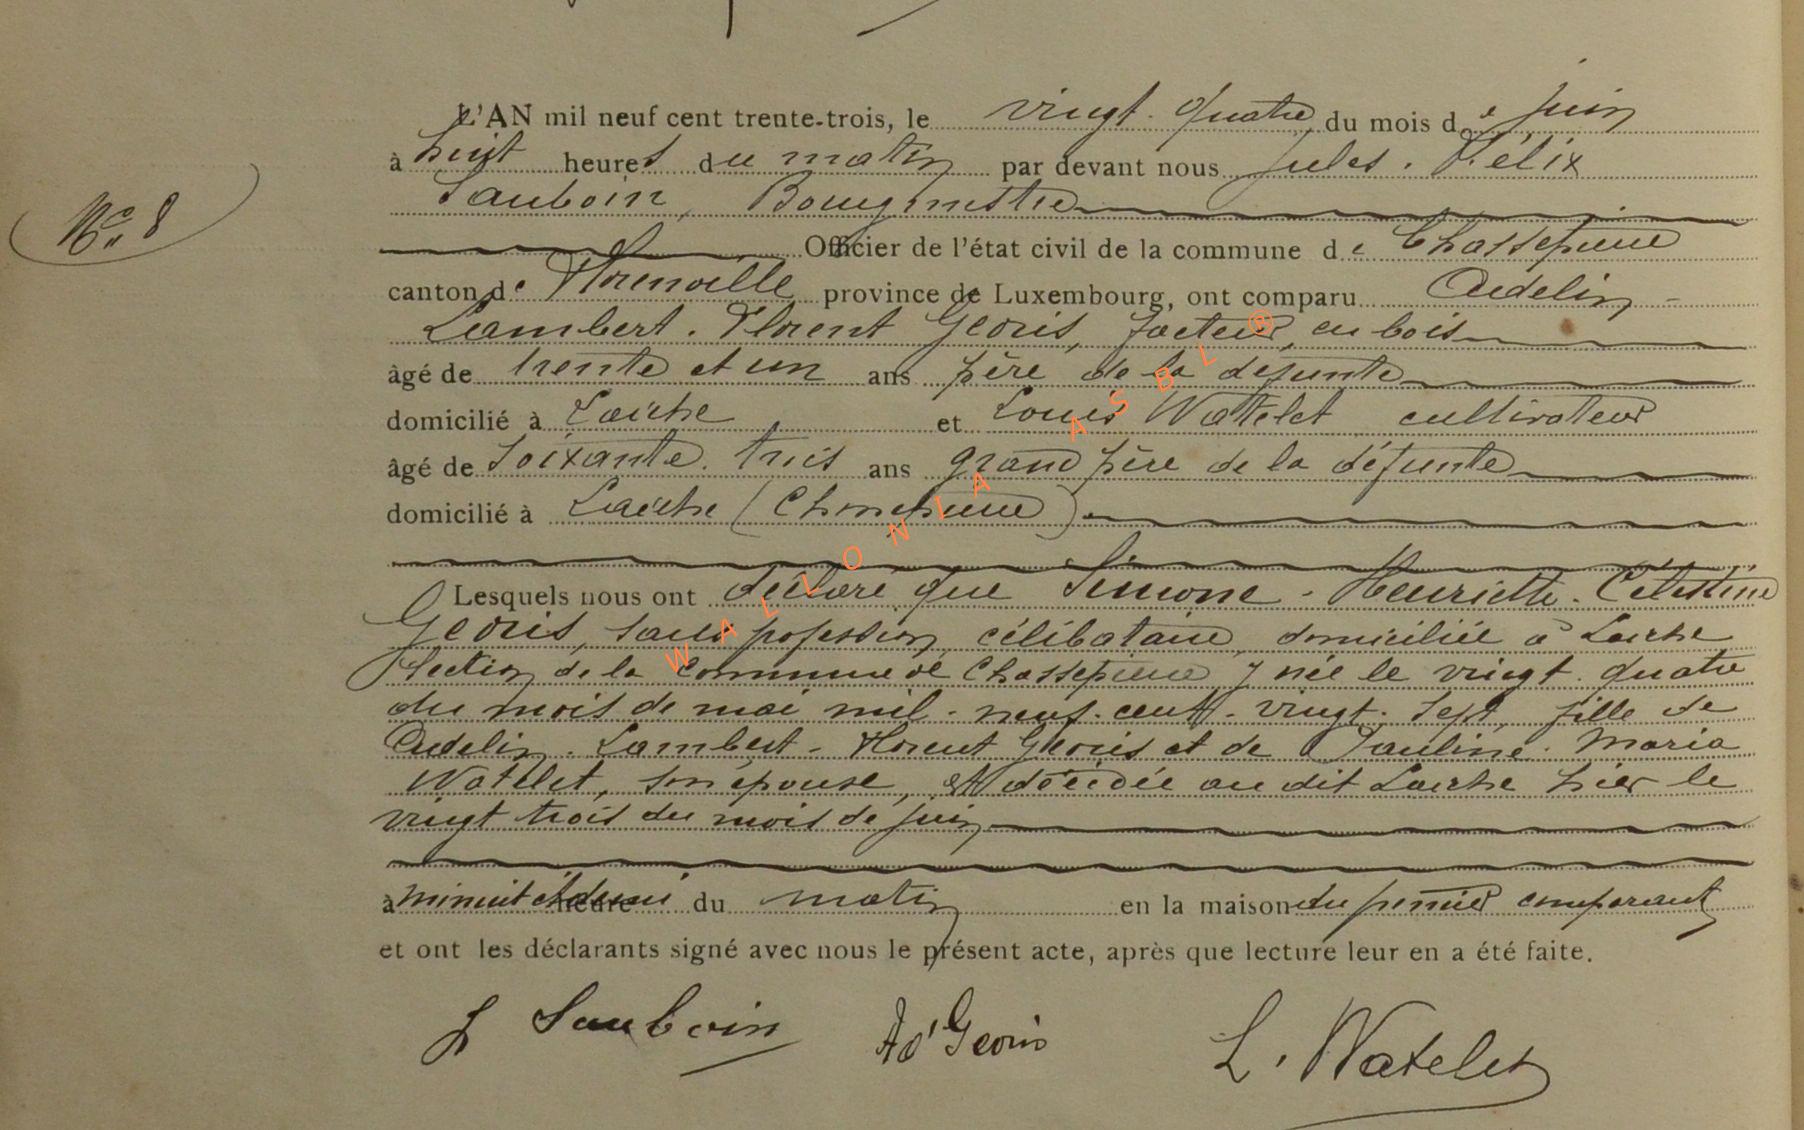 L'AN mil neuf cent trente-trois, le vingt-quatre du mois de juin
à huit heures du matin par devant nous Jules. Félix
Nº 8
Sauboin, Bourgmestre
Officier de l'état civil de la commune de Chassepierre
canton de Florenville province de Luxembourg, ont comparu Adelin-
Lambert. Florent Georis, facteur en bois
âgé de trente et un ans père de la défunte
domicilié à Laiche et Louis Watelet cultivateur
âgé de soixante. trois ans grand père de la défunte
domicilié à Laiche (Chassepierre)
Lesquels nous ont déclaré que Simone - Henriette. Célestine
Georis, sans profession, célibataire, domiciliée à Laiche
section de la commune de Chassepierre y née le vingt. quatre
du mois de mai mil - neuf. cent - vingt. sept, fille de
Adelin. Lambert - Florent Georis et de Pauline. Maria
Watelet, son épouse, est décédée au dit Laiche hier le
vingt trois du mois de juin
à minuit et demi heure du matin en la maison du premier comparant
et ont les déclarants signé avec nous le présent acte, après que lecture leur en a été faite.
J Sauboin Ad Georis L. Watelet
WALLONIA ASBL ®